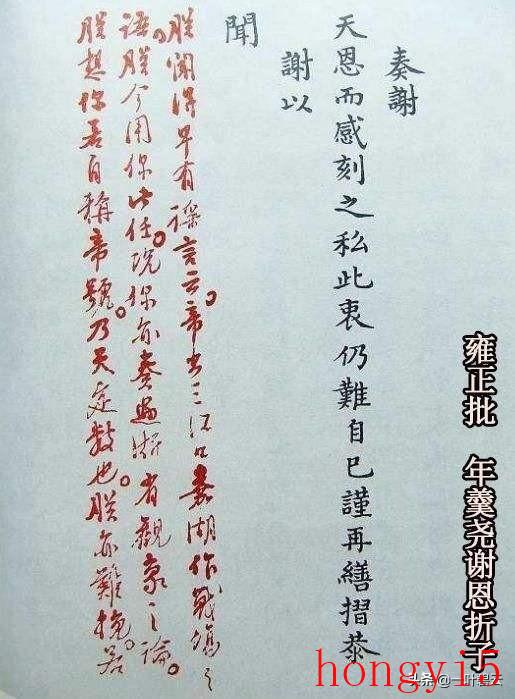 奏謝
天恩而感刻之私此衷仍難自已謹再繕摺恭
謝以
聞
朕聞得早有謠言云。帝出三江口嘉湖作戰場之
語。朕今用你此任。況你亦奏過浙省觀象之論。
朕想你若自稱帝號。乃天定數也。朕亦難挽。若
雍正批 年羹尧谢恩折子
hongyi5
头条 @一叶碧云